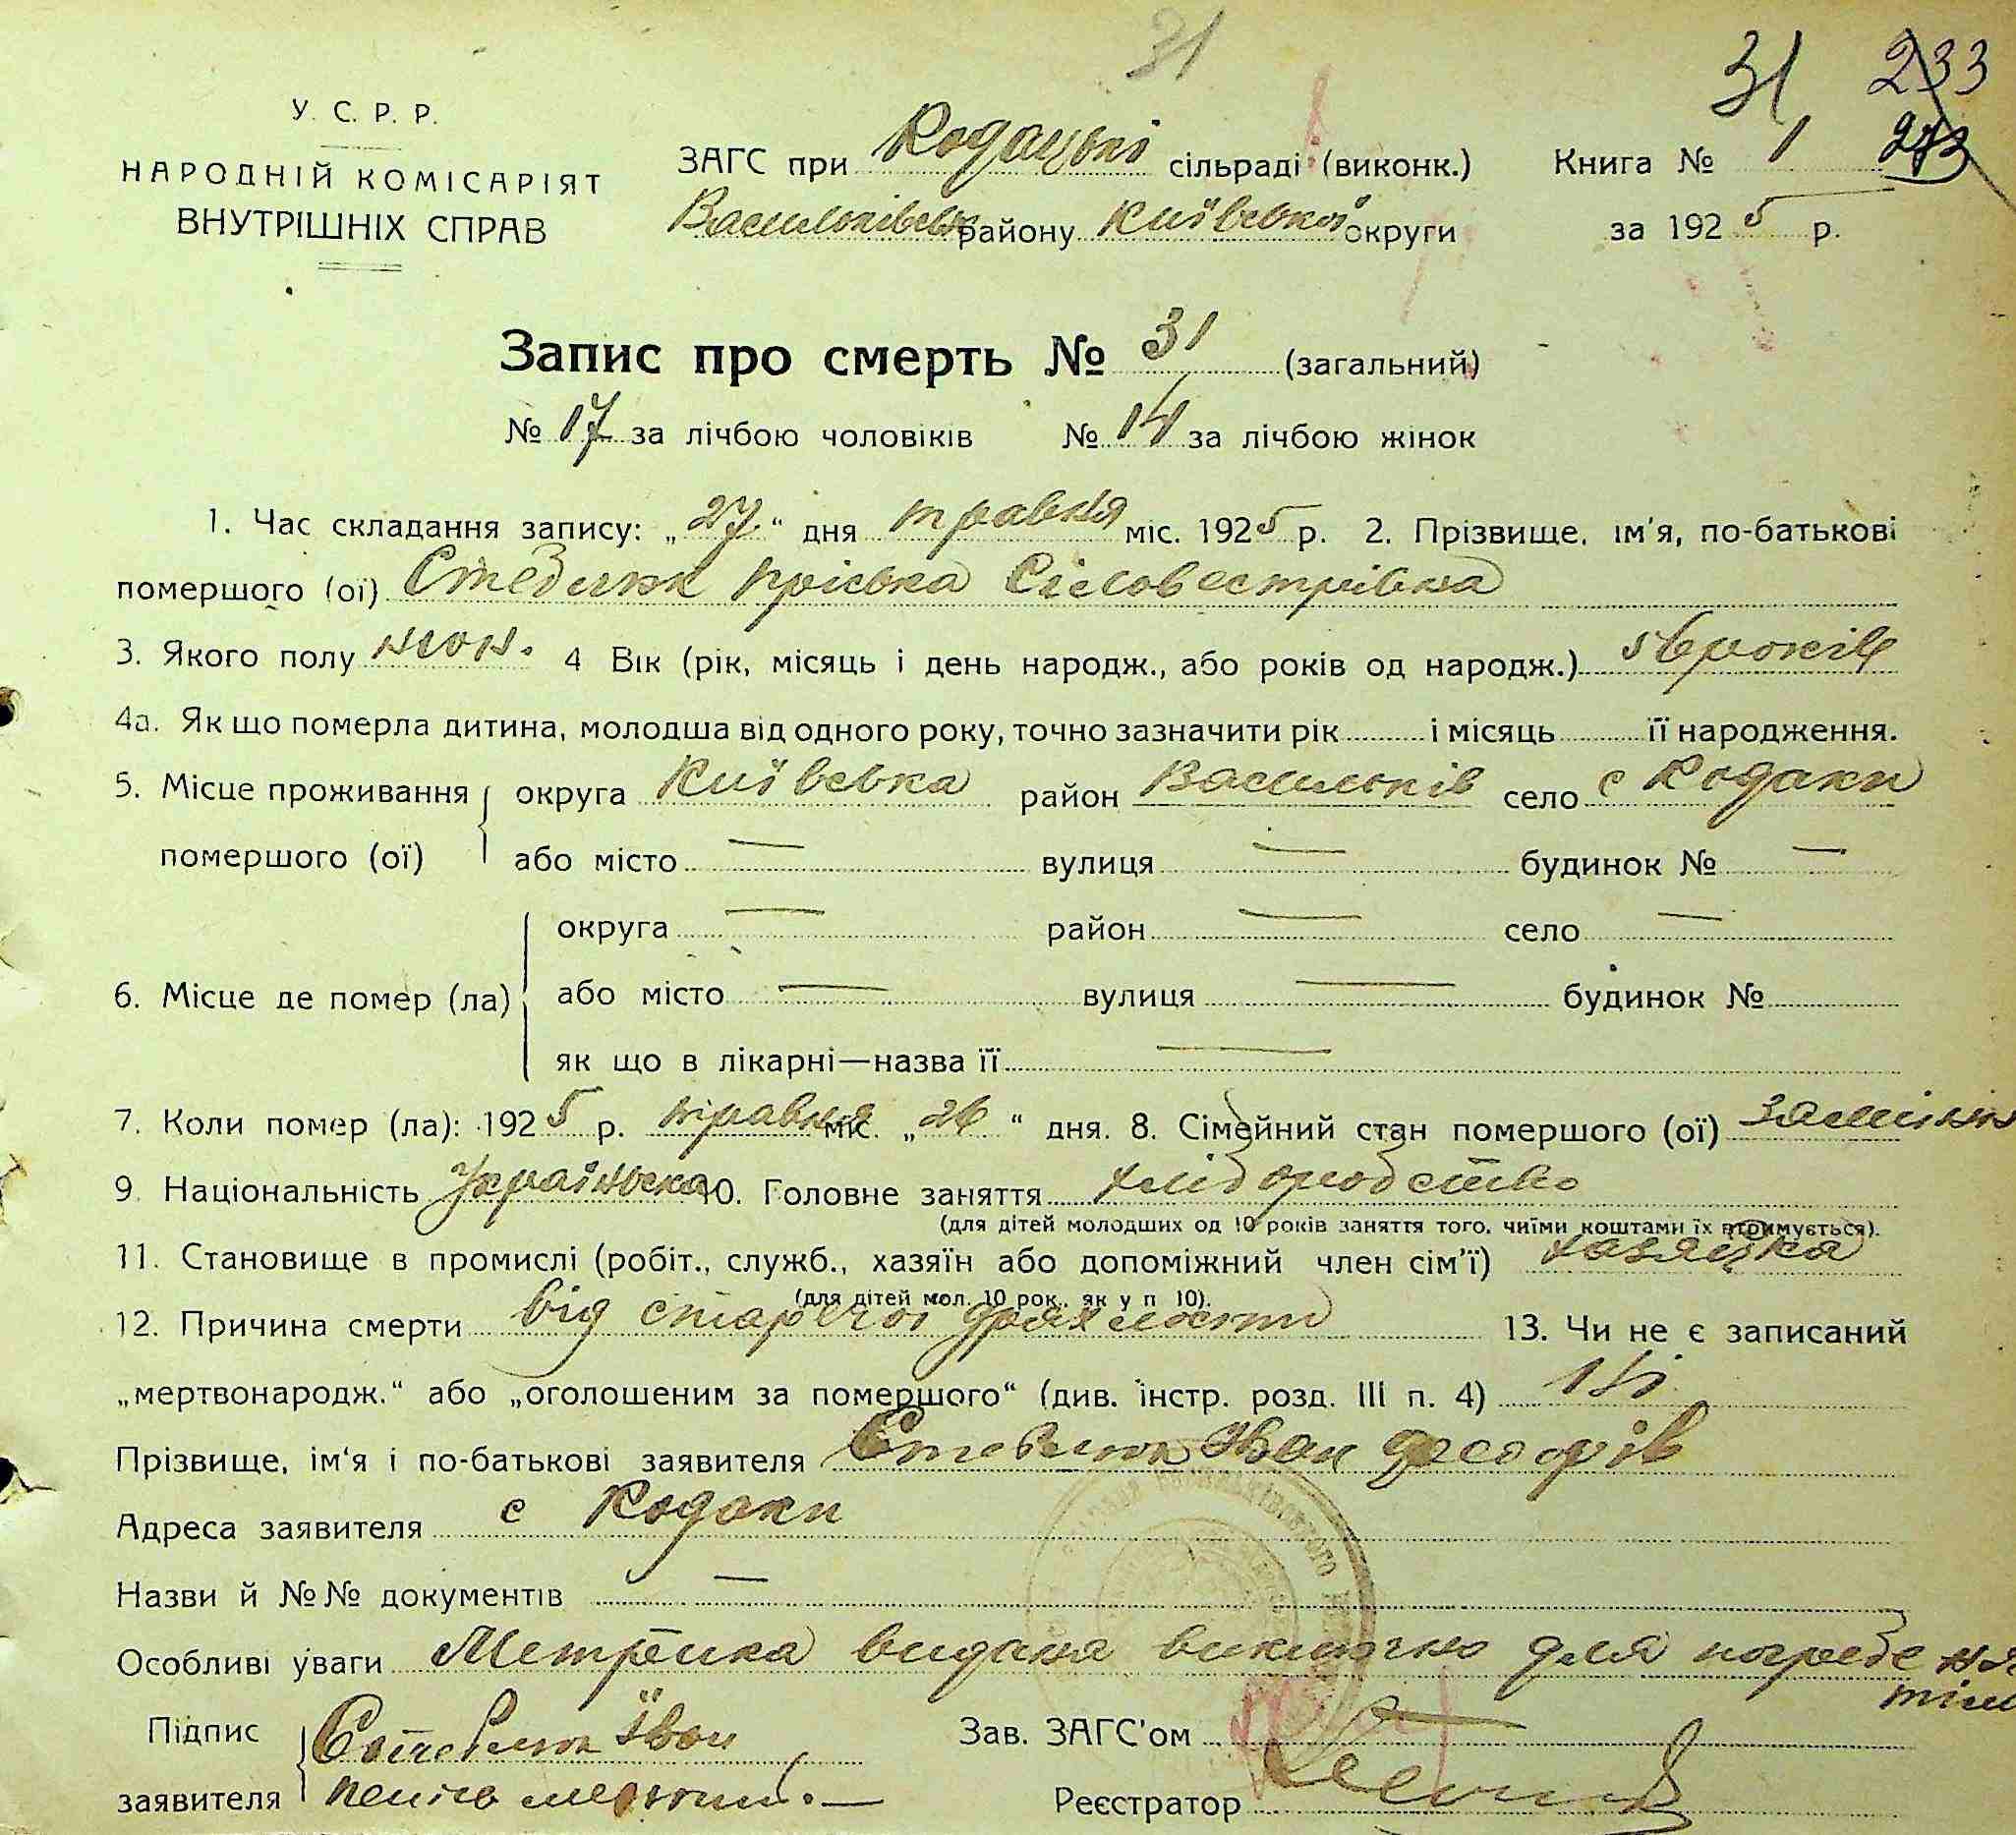 31
31 233
У. С. Р. Р.
НАРОДНІЙ КОМІСАРІЯТ
ВНУТРІШНІХ СПРАВ
ЗАГС при Кодацькі сільраді (виконк.)
Васильківськ району Київської округи
Книга № 1 273
за 1925 р.
Запис про смерть № 31 (загальний)
№ 17 за лічбою чоловіків № 14 за лічбою жінок
1. Час складання запису: „27“ дня травня міс. 1925 р. 2. Прізвище, ім'я, по-батькові
помершого (ої) Стеблюк Пріська Сіловестрівна
3. Якого полу жон. 4 Вік (рік, місяць і день народж., або років од народж.) 56 років
4а. Як що померла дитина, молодша від одного року, точно зазначити рік і місяць її народження.
5. Місце проживання округа Київська район Васильків село с Кодаки
помершого (ої) або місто — вулиця — будинок № —
округа — район — село —
6. Місце де помер (ла) або місто — вулиця — будинок №
як що в лікарні—назва її —
7. Коли помер (ла): 1925 р. травня міс. „26“ дня. 8. Сімейний стан помершого (ої)
9. Національність Українська 10. Головне заняття хлібородство
(для дітей молодших од 10 років заняття того, чиїми коштами їх втримується).
11. Становище в промислі (робіт., служб., хазяїн або допоміжний член сім'ї) хазяйка
(для дітей мол. 10 рок. як у п 10).
12. Причина смерти від старечої дряхлости 13. Чи не є записаний
„мертвонародж.“ або „оголошеним за помершого“ (див. інстр. розд. III п. 4) ні
Прізвище, ім'я і по-батькові заявителя Стеблюк Іван
Адреса заявителя с Кодаки
Назви й №№ документів —
Особливі уваги Метрика видана виключно для погребення
тіла
Підпис Стеблюк Іван Зав. ЗАГС'ом
заявителя Реєстратор